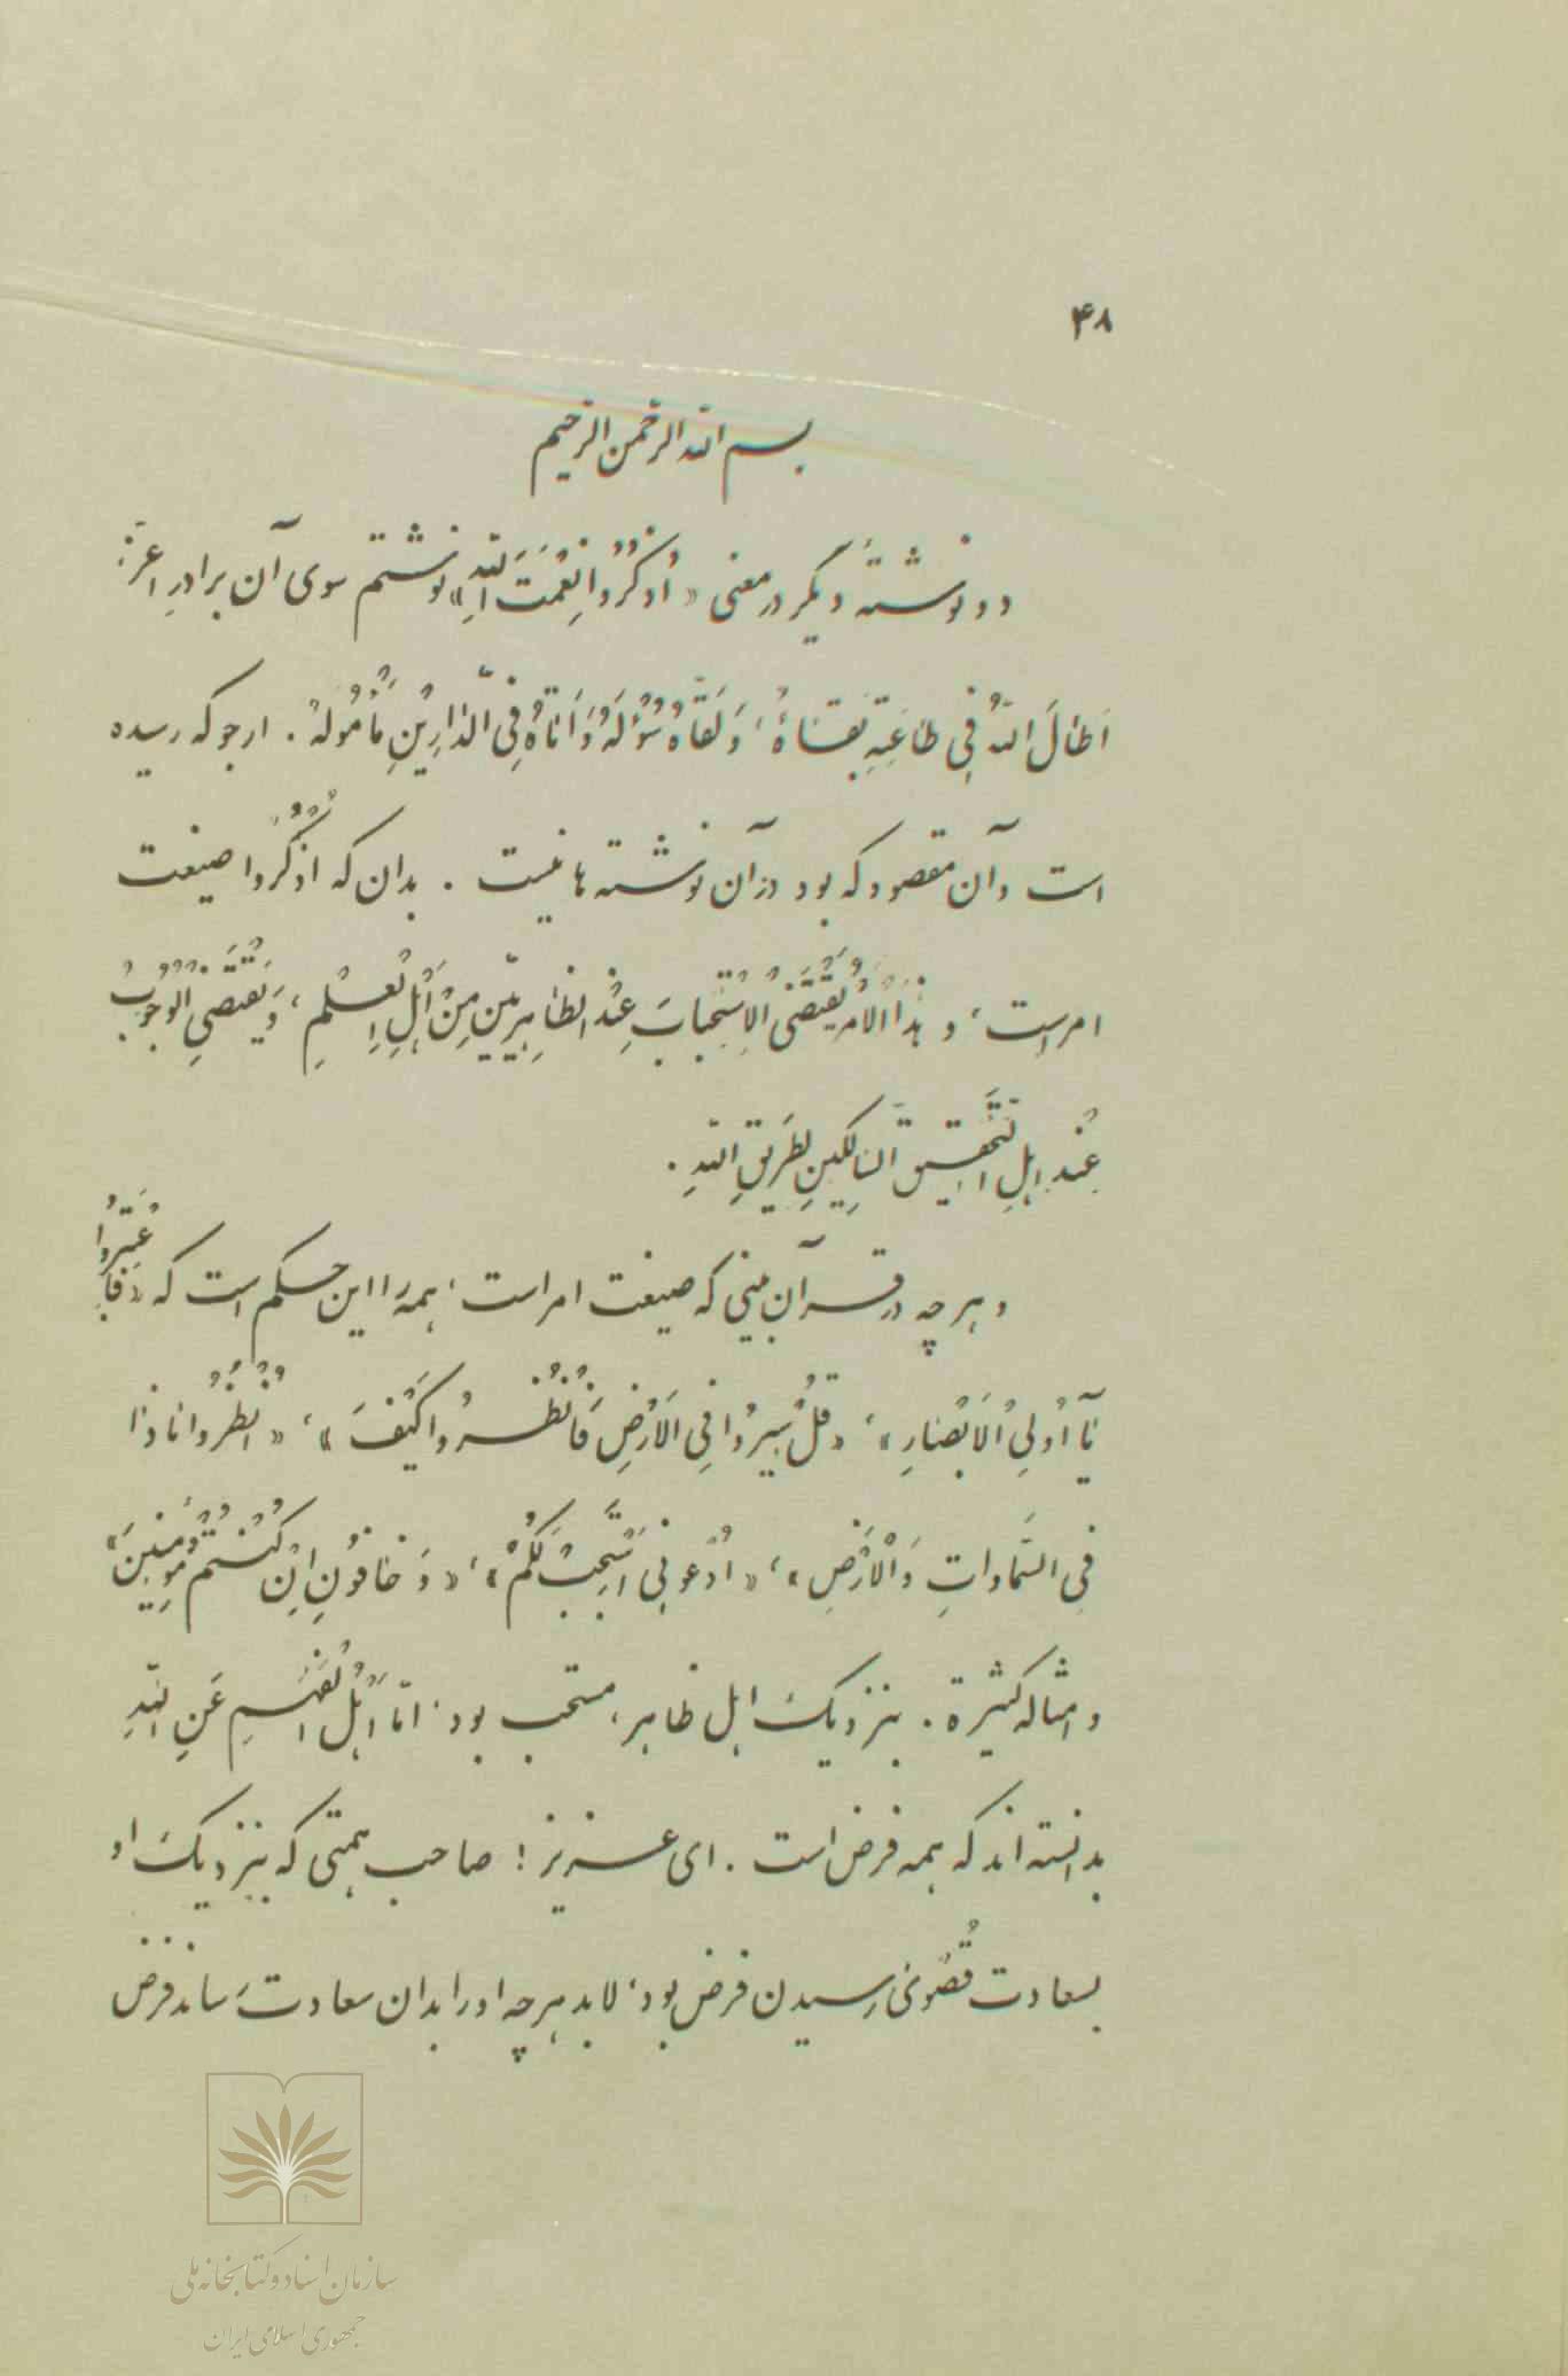 ۴۸
بسم الله الرحمن الرحیم
دو نوشتهٔ دیگر در معنی «اُذْکُرُوا نِعْمَتَ اللهِ» نوشتم سوی آن برادرِ اعزّ:
اَطالَ اللهُ فِی طاعَتِهِ بَقاءَهُ، وَ لَقّاهُ سُؤْلَهُ وَ اَتاهُ فِی الدّارَیْنِ مَأْمُولَهُ. ارجو که رسیده
است و آن مقصود که بود در آن نوشته‌ها نیست. بدان که اُذْکُرُوا صیغت
امر است، و هٰذَا الْاَمْرُ یَقْتَضِی الْاِسْتِحْبابَ عِنْدَ الظّاهِرِیّینَ مِنْ اَهْلِ الْعِلْمِ، وَ یَقْتَضِی الْوُجُوبَ
عِنْدَ اَهْلِ التَّحْقِیقِ السّالِکِینِ لِطَرِیقِ اللهِ.
و هر چه در قرآن بینی که صیغت امر است، همه را این حکم است که «فَاعْتَبِرُوا
یٰآ اُولِی الْاَبْصارِ»، «قُلْ سِیرُوا فِی الْاَرْضِ فَانْظُرُوا کَیْفَ»، «اُنْظُرُوا ماذا
فِی السَّمٰواتِ وَ الْاَرْضِ»، «اُدْعُونِی اَسْتَجِبْ لَکُمْ»، «وَ خافُونِ اِنْ کُنْتُمْ مُؤْمِنِینَ»
و امثاله کثیرة. بنزدیک اهل ظاهر، مستحب بود، امّا اَهْلُ الْفَهْمِ عَنِ اللهِ
بدانسته‌اند که همه فرض است. ای عزیز! صاحب همّتی که بنزدیک او
بسعادت قُصْوی رسیدن فرض بود، لابد هر چه او را بدان سعادت رساند فرض
سازمان اسناد و کتابخانه ملی
جمهوری اسلامی ایران